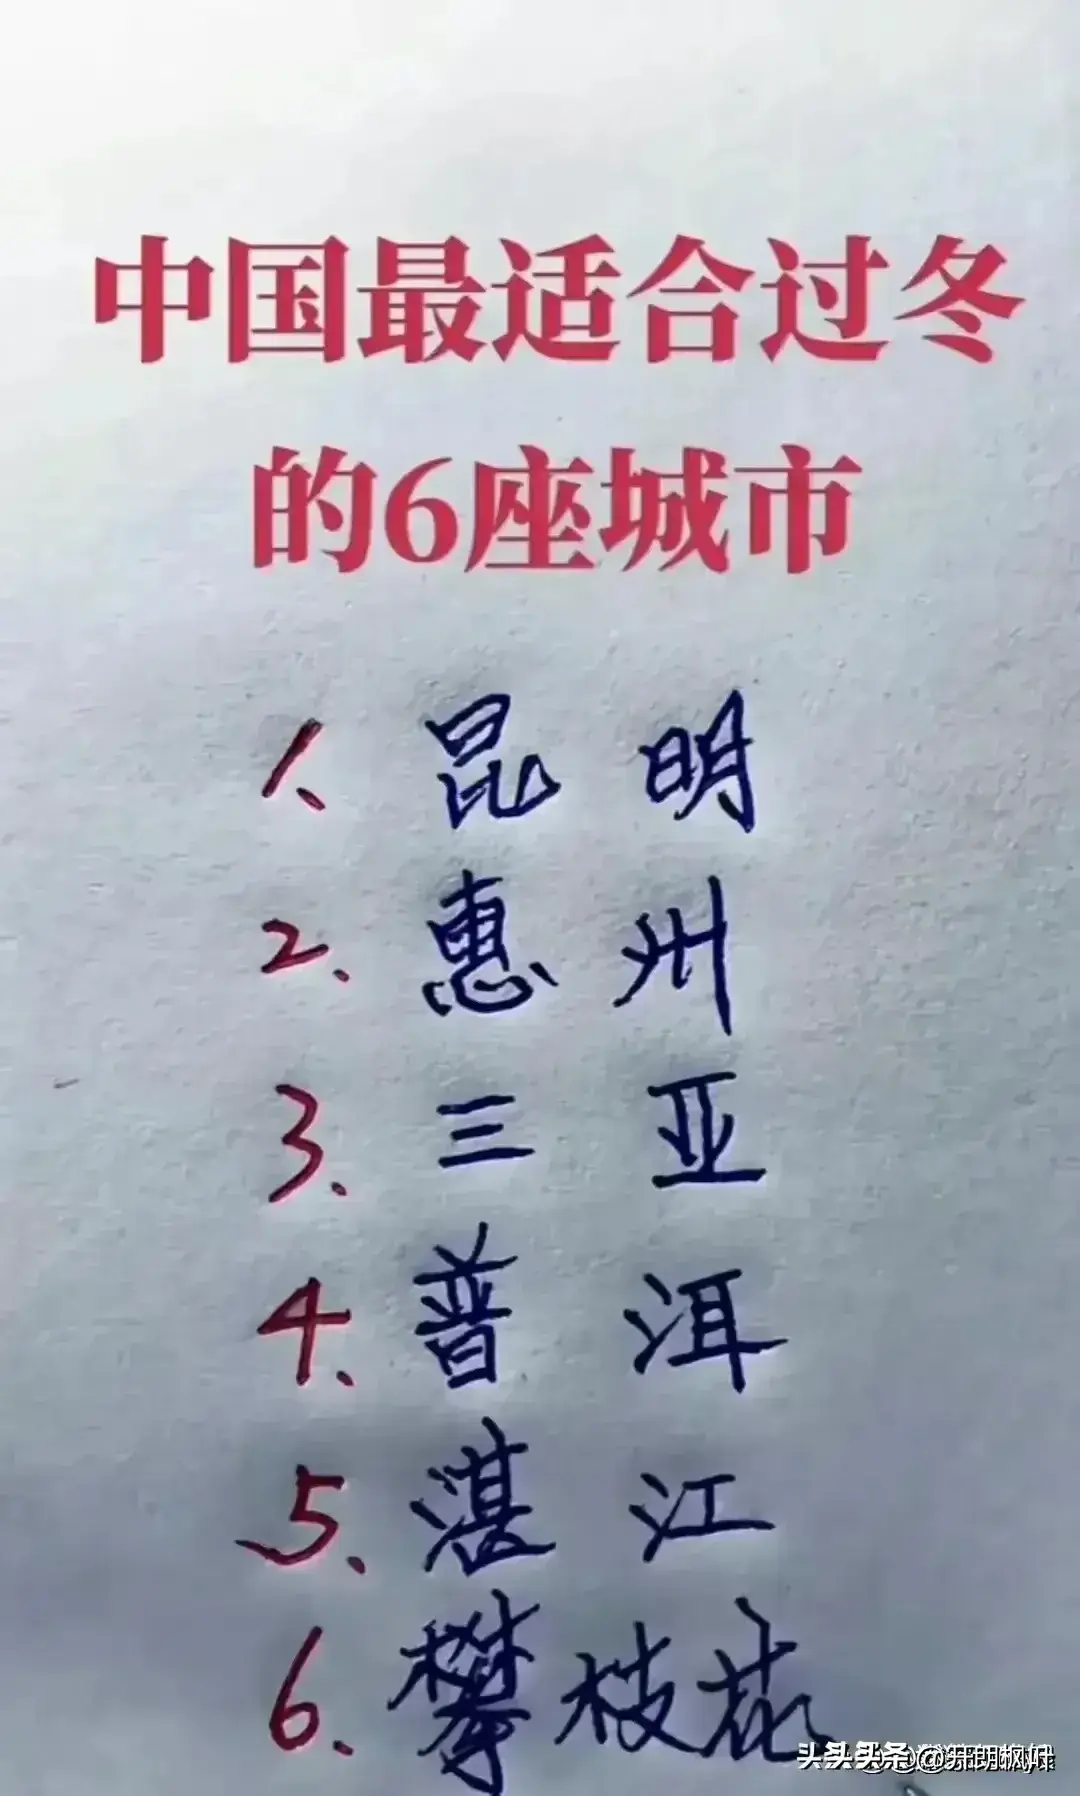 中国最适合过冬
的6座城市
1、昆明
2、惠州
3、三亚
4、普洱
5、湛江
6、攀枝花
头条 @开朗枫叶